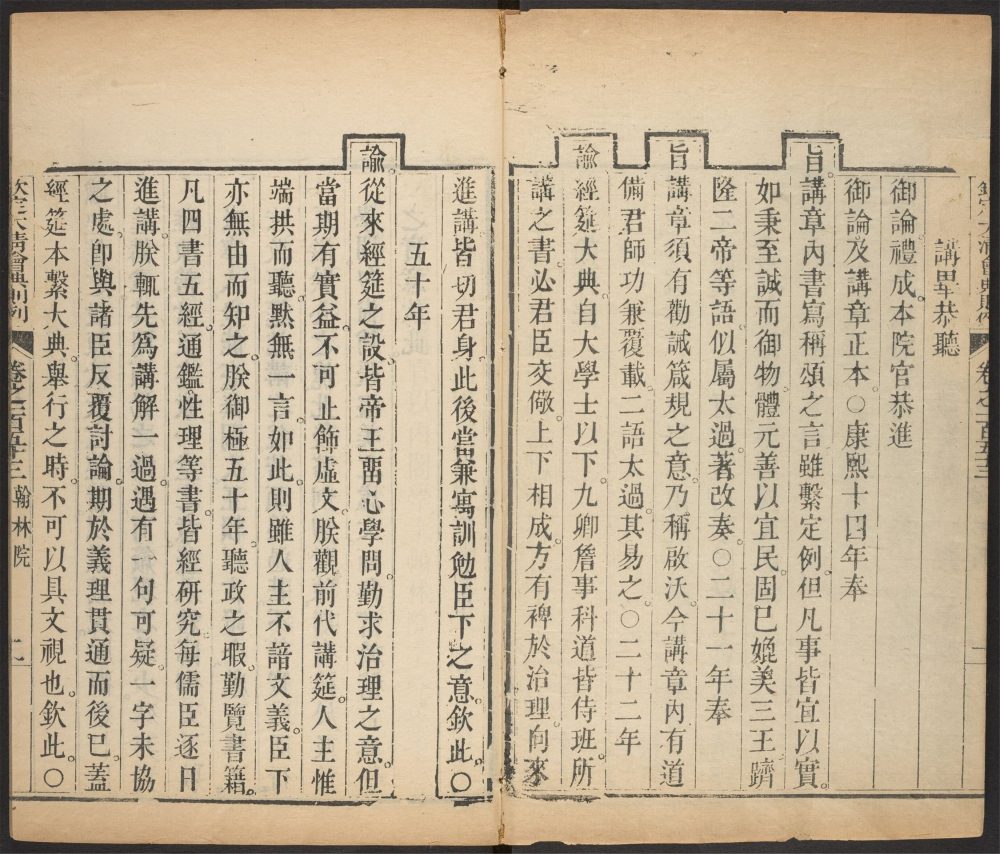 欽定大清會典則例 卷之一百五十三
講畢恭聽
御論禮成本院官恭進
御論及講章正本○康熙十四年奉
旨講章內書寫稱頌之言雖繫定例但凡事皆宜以實
如秉至誠而御物體元善以宜民固已媲美三王躋
隆二帝等語似屬太過著改奏○二十一年奉
旨講章須有勸誡箴規之意乃稱啟沃今講章內有道
備君師功兼覆載二語太過其易之○二十二年
諭經筵大典自大學士以下九卿詹事科道皆侍班所
講之書必君臣交儆上下相成方有裨於治理向來
進講皆切君身此後當兼寓訓勉臣下之意欽此○
五十年
諭從來經筵之設皆帝王畱心學問勤求治理之意但
當期有實益不可止飾虛文朕觀前代講筵人主惟
端拱而聽默無一言如此則雖人主不諳文義臣下
亦無由而知之朕御極五十年聽政之暇勤覽書籍
凡四書五經通鑑性理等書皆經研究每儒臣逐日
進講朕輒先為講解一過遇有一句可疑一字未協
之處卽與諸臣反覆討論期於義理貫通而後已蓋
經筵本繫大典舉行之時不可以具文視也欽此○
欽定大清會典則例 卷之一百五十三 翰林院